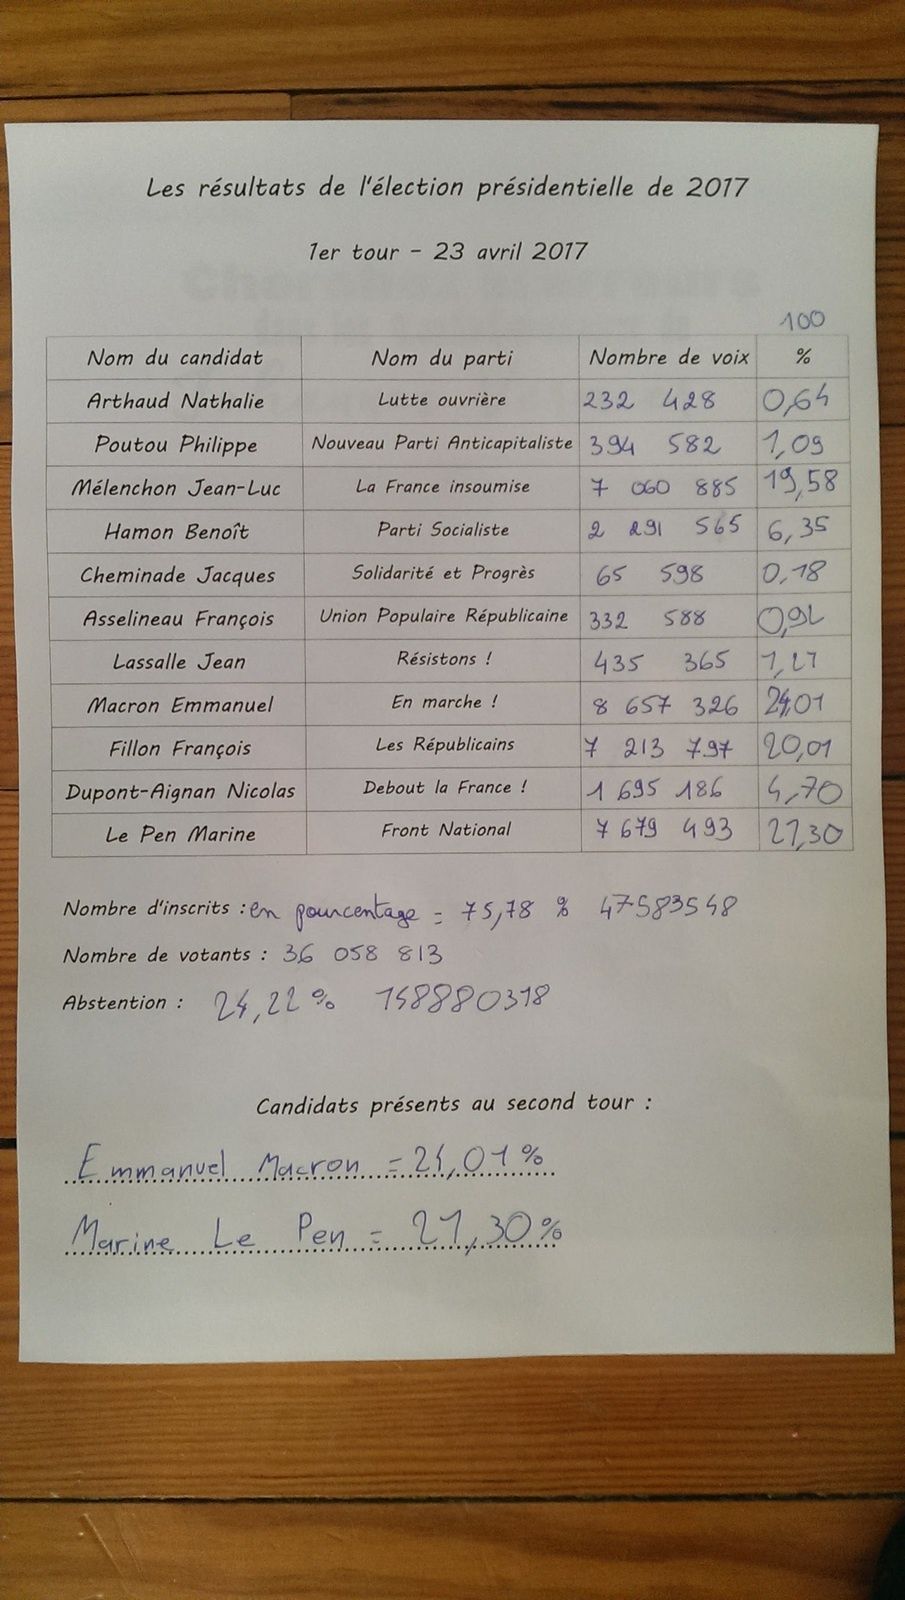 Les résultats de l'élection présidentielle de 2017
1er tour - 23 avril 2017
100
Nom du candidat Nom du parti Nombre de voix %
Arthaud Nathalie Lutte ouvrière 232 428 0,64
Poutou Philippe Nouveau Parti Anticapitaliste 394 582 1,09
Mélenchon Jean-Luc La France insoumise 7 060 885 19,58
Hamon Benoît Parti Socialiste 2 291 565 6,35
Cheminade Jacques Solidarité et Progrès 65 598 0,18
Asselineau François Union Populaire Républicaine 332 588 0,92
Lassalle Jean Résistons ! 435 365 1,21
Macron Emmanuel En marche ! 8 657 326 24,01
Fillon François Les Républicains 7 213 797 20,01
Dupont-Aignan Nicolas Debout la France ! 1 695 186 4,70
Le Pen Marine Front National 7 679 493 21,30
Nombre d'inscrits : en pourcentage = 75,78 % 47583548
Nombre de votants : 36 058 813
Abstention : 24,22%
Candidats présents au second tour :
Emmanuel Macron = 24,01%
Marine Le Pen = 21,30%